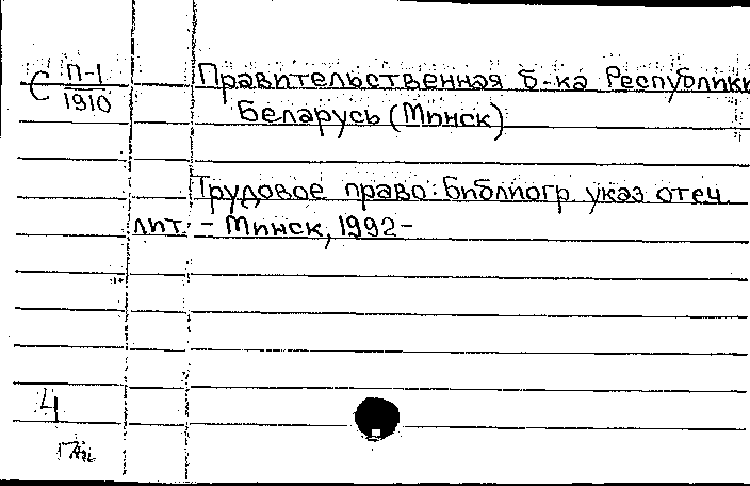 С П-1
1910
Правительственная б-ка Республики
Беларусь (Минск)
Трудовое право: Библиогр. указ. отеч.
лит. – Минск, 1992-
4